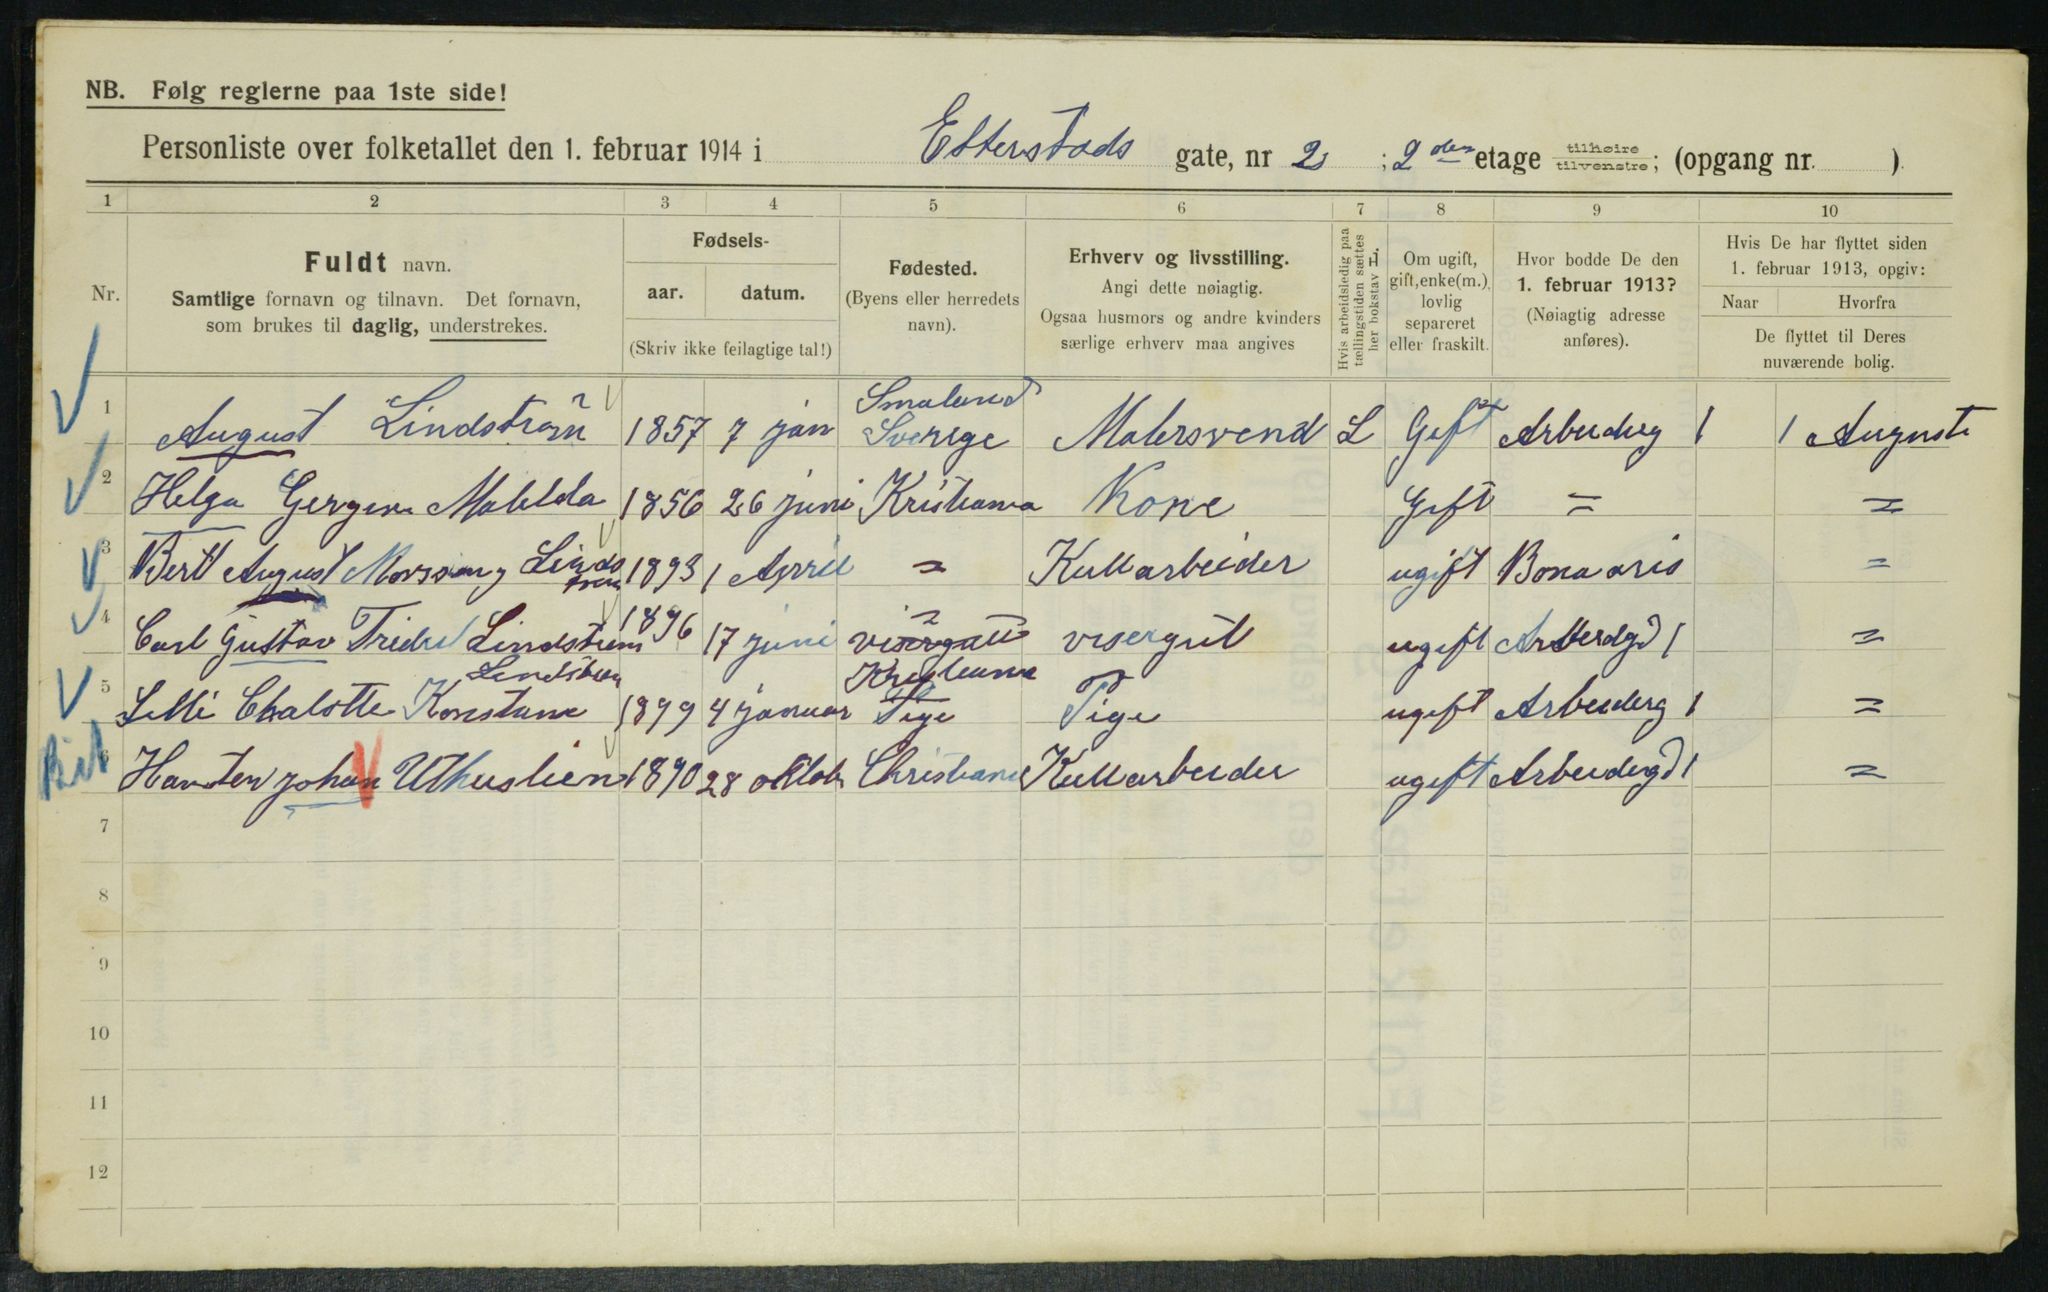 NB. Følg reglerne paa 1ste side!
Personliste over folketallet den 1. februar 1914 i Etterstads gate, nr 2 ; 2den etage tilhøire tilvenstre; (opgang nr. ).
1 2 3 4 5 6 7 8 9 10
Nr.
Fuldt navn.
Samtlige fornavn og tilnavn. Det fornavn,
som brukes til daglig, understrekes.
Fødsels-
aar. datum.
(Skriv ikke feilagtige tal!)
Fødested.
(Byens eller herredets
navn).
Erhverv og livsstilling.
Angi dette nøiagtig.
Ogsaa husmors og andre kvinders
særlige erhverv maa angives
Hvis arbeidsledig paa
tællingstiden sættes
her bokstav L.
Om ugift,
gift, enke(m.),
lovlig
separeret
eller fraskilt.
Hvor bodde De den
1. februar 1913?
(Nøiagtig adresse
anføres).
Hvis De har flyttet siden
1. februar 1913, opgiv:
Naar Hvorfra
De flyttet til Deres
nuværende bolig.
1 August Lindström 1857 7 jan Smaland Sverige Malersvend L Gift Arbeiderg 1 1 August
2 Helga Malilda 1856 26 juni Kristiania Kone Gift = =
3 Bertl August Linds trøm 1893 1 April = Kullarbeider ugift Bona aris =
4 Carl Gustav Lindstrøm 1896 17 juni visergutt Kristiania visergut ugift 1 =
5 Lilli Chalotte Konstanse Lindstrøm 1899 4 januar Tige Tige ugift Arbeiderg 1 =
6 Karsten johan Uthuslien 1890 28 oktob Christiania Kullarbeider ugift Arbeidergd 1 =
7
8
9
10
11
12